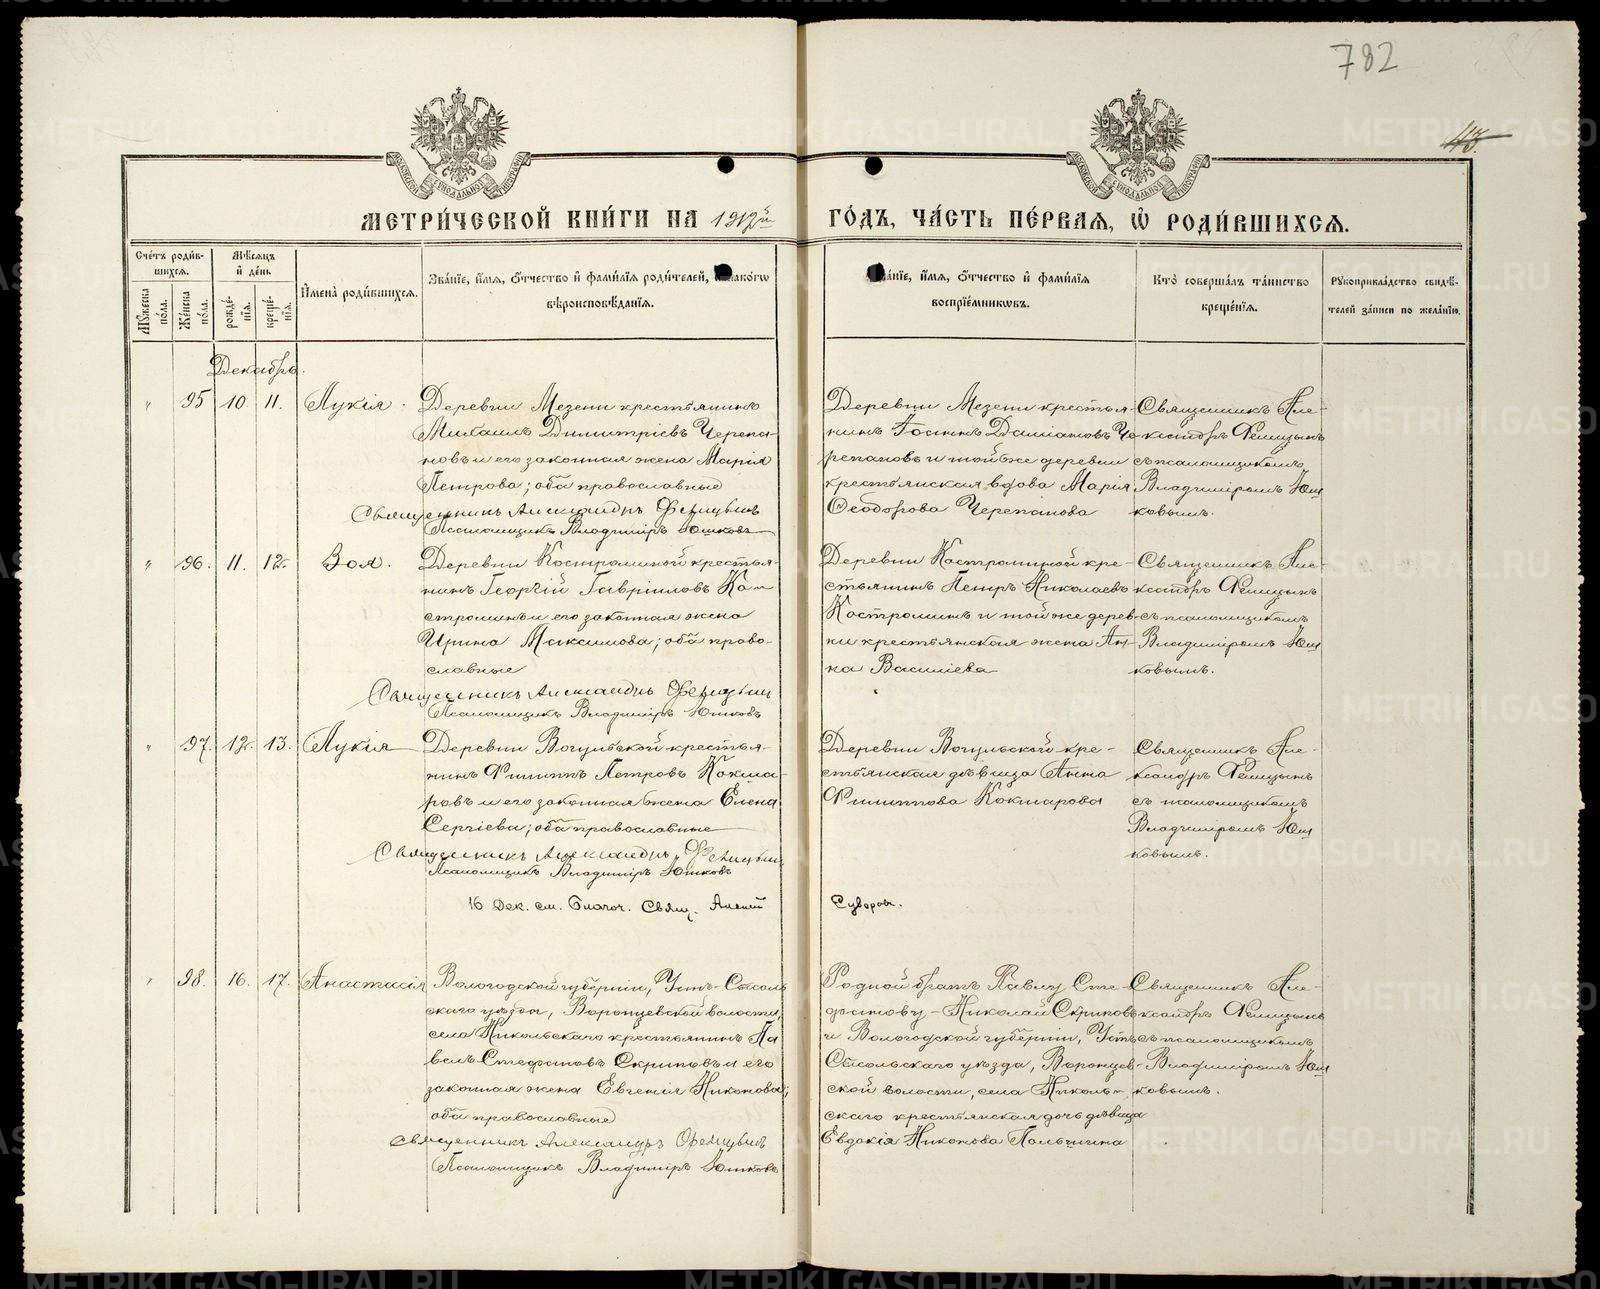 782
43.
МОСКОВСКОЙ СѴНОДАЛЬНОЙ ТИПОГРАФІИ
МОСКОВСКОЙ СѴНОДАЛЬНОЙ ТИПОГРАФІИ
МЕТРИ́ЧЕСКОЙ КНИ́ГИ НА 1912й ГО́ДЪ, ЧА́СТЬ ПЕ́РВАЯ, Ѽ РОДИ́ВШИХСЯ.
Сче́тъ роди́в-
шихся.
Му́жеска по́ла.
Же́нска по́ла.
Мѣ́сяцъ
и҆ де́нь
рожде́-
нїя.
креще́-
нїя.
И҆мена̀ роди́вшихся.
Зва́нїе, и҆́мя, ѻ҆́тчество и҆ фами́лїя роди́телей, и҆ како́гѡ
вѣроисповѣ́данїя.
Зва́нїе, и҆́мя, ѻ҆́тчество и҆ фами́лїя
воспрїе́мниковъ.
Кто̀ соверша́лъ та́инство
креще́нїя.
Рꙋкоприкла́дство свидѣ́-
телей за́писи по жела́нїю.
Декабрь.
" 95 10. 11. Лукія.
Деревни Мезени крестьянинъ
Михаилъ Димитріевъ Черепа-
новъ и его законная жена Марія
Петрова; оба православные
Священникъ Александръ Феницынъ
Псаломщикъ Владиміръ Юшковъ
Деревни Мезени крестья-
нинъ Іоаннъ Даміановъ Че-
репановъ и той же деревни
крестьянская вдова Марія
Ѳеодорова Черепанова
Священникъ Але-
ксандръ Феницынъ
съ псаломщикомъ
Владиміромъ Юш
ковымъ.
" 96. 11. 12. Зоя.
Деревни Костроминой крестья-
нинъ Георгій Гавріиловъ Ко-
строминъ и его законная жена
Ирина Максимова; оба право-
славные
Священникъ Александръ Феницынъ
Псаломщикъ Владиміръ Юшковъ
Деревни Костроминой кре-
стьянинъ Петръ Николаевъ
Костроминъ и той же дерев-
ни крестьянская жена Ан-
на Василіева
Священникъ Але-
ксандръ Феницынъ
съ псаломщикомъ
Владиміромъ Юш
ковымъ.
" 97. 12. 13. Лукія
Деревни Вогульской крестья-
нинъ Филиппъ Петровъ Кокша-
ровъ и его законная жена Елена
Сергіева; оба православные
Священникъ Александръ Феницынъ
Псаломщикъ Владиміръ Юшковъ
Деревни Вогульской кре-
стьянская дѣвица Анна
Филиппова Кокшарова
Священникъ Але-
ксандръ Феницынъ
съ псаломщикомъ
Владиміромъ Юш
ковымъ.
16 Дек. см. Благоч. Свящ. Алексій Суворовъ.
" 98. 16. 17. Анастасія
Вологодской губерніи, Усть-Сысоль
скаго уѣзда, Воронцевской волости,
села Никольскаго крестьянинъ Па
велъ Стефановъ Скриповъ и его
законная жена Евгенія Никонова;
оба православные
Священникъ Александръ Феницынъ
Псаломщикъ Владиміръ Юшковъ
Родной братъ Павлу Сте-
фанову - Николай Скриповъ
и Вологодской губерніи, Усть
Сысольскаго уѣзда, Воронцев-
ской волости, села Николь-
скаго крестьянская дочь дѣвица
Евдокія Никонова Польшина
Священникъ Але-
ксандръ Феницынъ
съ псаломщикомъ
Владиміромъ Юш
ковымъ.
METRIKI.GASO-URAL.RU